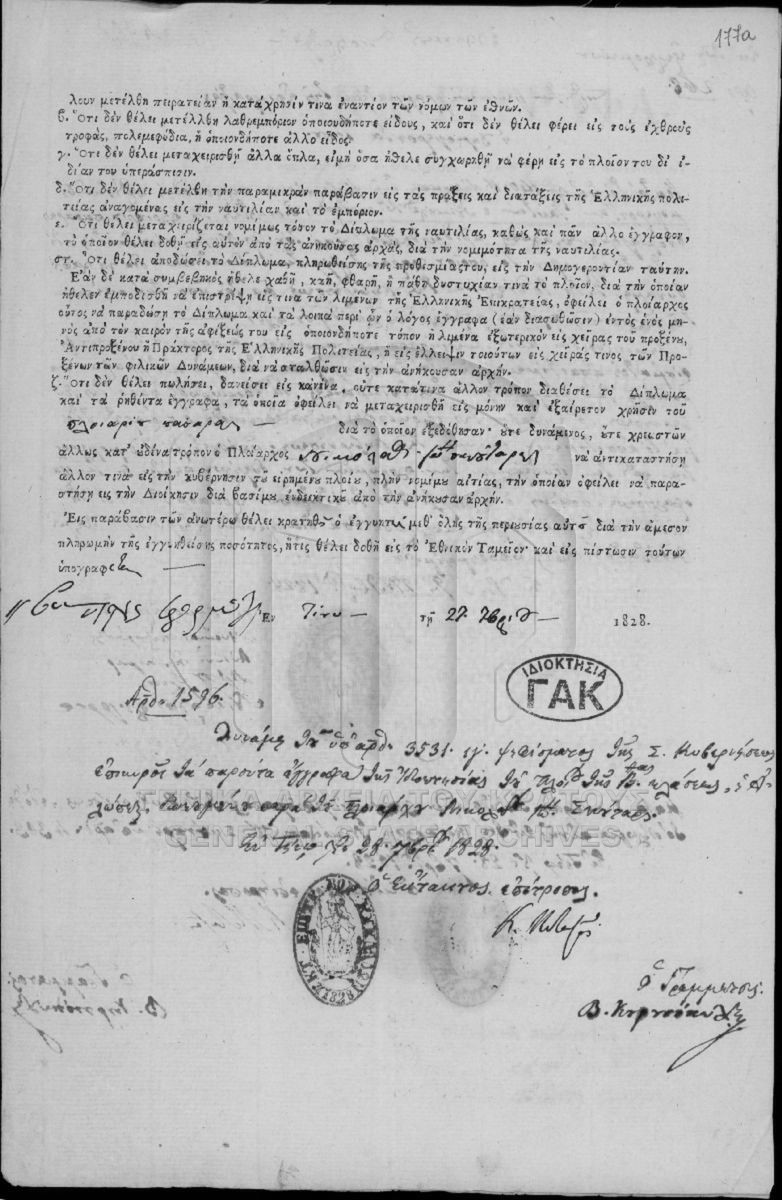 177a
λουν μετέλθῃ πειρατείαν ἢ κατάχρησίν τινα ἐναντίον τῶν νόμων τῶν ἐθνῶν.
β. Ὅτι δὲν θέλει μετέλλθῃ λαθρεμπόριον ὁποιουδήποτε εἴδους, καὶ ὅτι δὲν θέλει φέρει εἰς τοὺς ἐχθροὺς
τροφάς, πολεμεφόδια, ἢ ὁποιονδήποτε ἄλλο εἶδος.
γ. Ὅτι δὲν θέλει μεταχειρισθῇ ἄλλα ὅπλα, εἰμὴ ὅσα ἤθελε συγχωρηθῇ νὰ φέρῃ εἰς τὸ πλοῖόν του δι' ἰ-
δίαν του ὑπεράσπισιν.
δ. Ὅτι δὲν θέλει μετέλθῃ τὴν παραμικρὰν παράβασιν εἰς τὰς πράξεις καὶ διατάξεις τῆς Ἑλληνικῆς πολι-
τείας ἀναγομένας εἰς τὴν ναυτιλίαν καὶ τὸ ἐμπόριον.
ε. Ὅτι θέλει μεταχειρίζεται νομίμως τόσον τὸ Δίπλωμα τῆς ναυτιλίας, καθὼς καὶ πᾶν ἄλλο ἔγγραφον,
τὸ ὁποῖον θέλει δοθῇ εἰς αὐτὸν ἀπὸ τὰς ἀνηκούσας ἀρχάς, διὰ τὴν νομιμότητα τῆς ναυτιλίας.
στ. Ὅτι θέλει ἀποδώσει τὸ Δίπλωμα, πληρωθείσης τῆς προθεσμίας του, εἰς τὴν Δημογεροντίαν ταύτην.
Ἐὰν δὲ κατὰ συμβεβηκὸς ἤθελε χαθῇ, καῇ, φθαρῇ, ἢ πάθῃ δυστυχίαν τινὰ τὸ πλοῖον, διὰ τὴν ὁποίαν
ἤθελεν ἐμποδισθῇ νὰ ἐπιστρέψῃ εἴς τινα τῶν λιμένων τῆς Ἑλληνικῆς Ἐπικρατείας, ὀφείλει ὁ πλοίαρχος
οὗτος νὰ παραδώσῃ τὸ Δίπλωμα καὶ τὰ λοιπὰ περὶ ὧν ὁ λόγος ἔγγραφα (ἐὰν διασωθῶσιν) ἐντὸς ἑνὸς μη-
νὸς ἀπὸ τὸν καιρὸν τῆς ἀφίξεώς του εἰς ὁποιονδήποτε τόπον ἢ λιμένα ἐξωτερικὸν εἰς χεῖρας τοῦ προξένου,
Ἀντιπροξένου ἢ Πράκτορος τῆς Ἑλληνικῆς Πολιτείας, ἢ εἰς ἔλλειψιν τοιούτων εἰς χεῖρας τινος τῶν Προ-
ξένων τῶν φιλικῶν Δυνάμεων, διὰ νὰ σταλθῶσιν εἰς τὴν ἀνήκουσαν ἀρχήν.
ζ. Ὅτι δὲν θέλει πωλήσει, δανείσει εἰς κανένα, οὔτε κατά τινα ἄλλον τρόπον διαθέσει τὸ Δίπλωμα
καὶ τὰ ῥηθέντα ἔγγραφα, τὰ ὁποῖα ὀφείλει νὰ μεταχειρισθῇ εἰς μόνην καὶ ἐξαίρετον χρῆσιν τοῦ
διὰ τὸ ὁποῖον ἐξεδόθησαν· οὔτε δυνάμενος, οὔτε χρεωστῶν
ἄλλως κατ' οὐδένα τρόπον ὁ Πλοίαρχος νὰ ἀντικαταστήσῃ
ἄλλον τινὰ εἰς τὴν κυβέρνησιν τοῦ εἰρημένου πλοίου, πλὴν νομίμου αἰτίας, τὴν ὁποίαν ὀφείλει νὰ παρα-
στήσῃ εἰς τὴν Διοίκησιν διὰ βασίμου ἐνδεικτικοῦ ἀπὸ τὴν ἀνήκουσαν ἀρχήν.
Εἰς παράβασιν τῶν ἀνωτέρω θέλει κρατηθῆ ὁ ἐγγυητὴς μεθ' ὅλης τῆς περιουσίας αὐτοῦ διὰ τὴν ἄμεσον
πληρωμὴν τῆς ἐγγυηθείσης ποσότητος, ἥτις θέλει δοθῆ εἰς τὸ Ἐθνικὸν Ταμεῖον· καὶ εἰς πίστωσιν τούτων
ὑπογράφεται
Ἐν Τήνῳ τῇ 27 7βρίου 1828.
ΙΔΙΟΚΤΗΣΙΑ
ΓΑΚ
Ἀριθ. 1596.
Δυνάμει τοῦ ὑπ' ἀριθ. 3531 ψηφίσματος τῆς Σ. Κυβερνήσεως
ἐπικυροῖ τὰ παρόντα ἔγγραφα
GENERAL STATE ARCHIVES
28 7βρίου 1828.
Ὁ Ἔκτακτος ἐπίτροπος.
Ὁ Γραμματεύς.